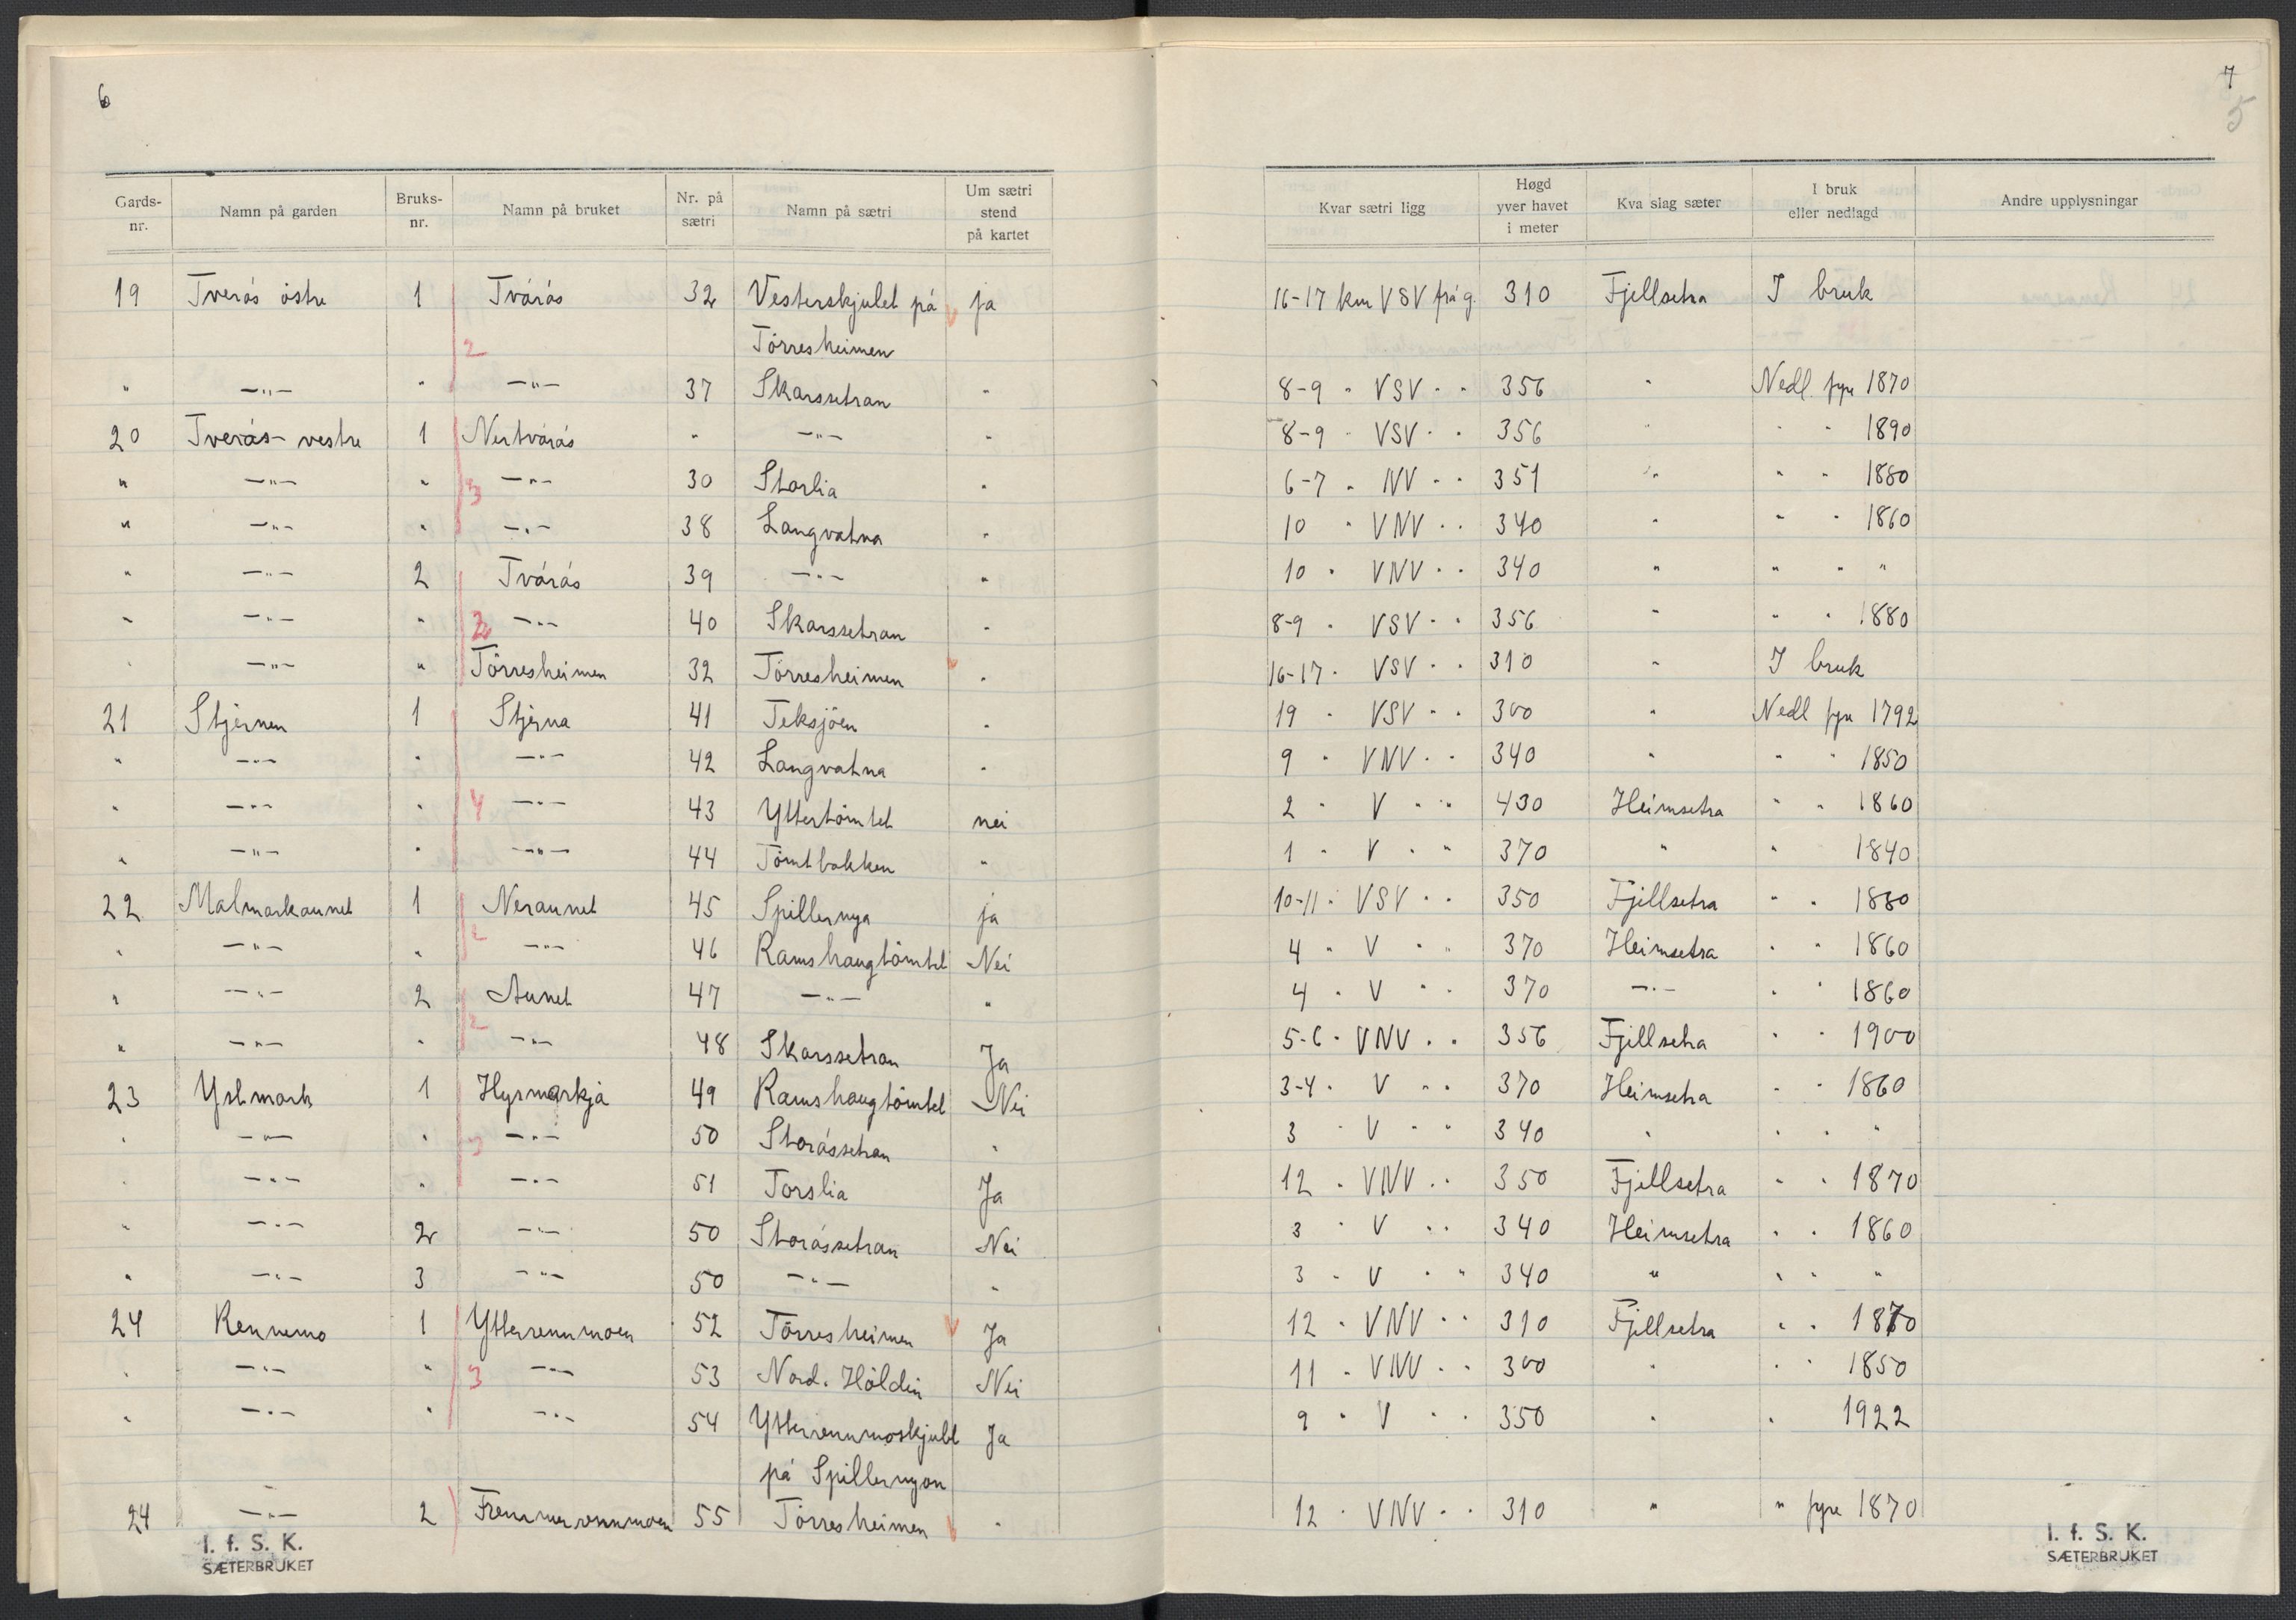 6
7
5
Gards-nr. | Namn på garden | Bruks-nr. | Namn på bruket | Nr. på sætri | Namn på sætri | Um sætri stend på kartet | Kvar sætri ligg | Høgd yver havet i meter | Kva slag sæter | I bruk eller nedlagd | Andre upplysningar
19 | Tverås östre | 1 | Tvårås | 32 | Vesterskjulet på | ja | 16-17 km VSV frå g. | 310 | Fjellsetra | I bruk
2 | Törresheimen
" | -"- | " | -"- | 37 | Skarssetran | " | 8-9 " VSV " " | 356 | " | Nedl. fyre 1870
20 | Tverås- vestre | 1 | Nertvårås | " | -"- | " | 8-9 " VSV " " | 356 | " | " " 1890
" | -"- | " | 3 -"- | 30 | Storlia | " | 6-7 " NV " " | 351 | " | " " 1880
" | -"- | " | -"- | 38 | Langvatna | " | 10 " VNV " " | 340 | " | " " 1860
" | -"- | 2 | Tvårås | 39 | -"- | " | 10 " VNV " " | 340 | " | " " "
" | -"- | " | -"- | 40 | Skarssetran | " | 8-9 " VSV " " | 356 | " | " " 1880
" | -"- | " | Törresheimen | 32 | Törresheimen | " | 16-17 " VSV " " | 310 | " | I bruk
21 | Stjernen | 1 | Stjerna | 41 | Teksjöen | " | 19 " VSV " " | 300 | " | Nedl fyre 1792
" | -"- | " | -"- | 42 | Langvatna | " | 9 " VNV " " | 340 | " | " " 1850
" | -"- | " | 4 -"- | 43 | Yttertömtel | nei | 2 " V " " | 430 | Heimsetra | " " 1860
" | -"- | " | -"- | 44 | Tömtbakken | " | 1 " V " " | 370 | " | " 1840
22 | Malmarkaunet | 1 | Neraunet | 45 | Spillernya | ja | 10-11 " VSV " " | 350 | Fjellsetra | " " 1880
" | -"- | " | 2 -"- | 46 | Ramshaugtömtel | Nei | 4 " V " " | 370 | Heimsetra | " " 1860
" | -"- | 2 | Aunet | 47 | -"- | " | 4 " V " " | 370 | -"- | " " 1860
" | -"- | " | 2 -"- | 48 | Skarssetran | Ja | 5-6 " VNV " " | 356 | Fjellsetra | " " 1900
23 | Ystmark | 1 | Hysmarkja | 49 | Ramshaugtömtel | Nei | 3-4 " V " " | 370 | Heimsetra | " " 1860
" | -"- | " | 3 -"- | 50 | Storåssetran | " | 3 " V " " | 340 | " | " " "
" | -"- | " | -"- | 51 | Torslia | Ja | 12 " VNV " " | 350 | Fjellsetra | " " 1870
" | -"- | 2 | -"- | 50 | Storåssetran | Nei | 3 " V " " | 340 | Heimsetra | " " 1860
" | -"- | 3 | -"- | 50 | -"- | " | 3 " V " " | 340 | " | " " "
24 | Rennemo | 1 | Ytterrennmoen | 52 | Törresheimen | Ja | 12 " VNV " " | 310 | Fjellsetra | " " 1870
" | -"- | " | 3 -"- | 53 | Nord. Höldin | Nei | 11 " VNV " " | 300 | " | " " 1850
" | -"- | " | -"- | 54 | Ytterrennmoskjulet | Ja | 9 " V " " | 350 | " | " 1922
på Spillernyon
24 | -"- | 2 | Fremmerrennmoen | 55 | Törresheimen | " | 12 " VNV " " | 310 | " | " fyre 1870
I. f. S. K.
SÆTERBRUKET
I. f. S. K.
SÆTERBRUKET